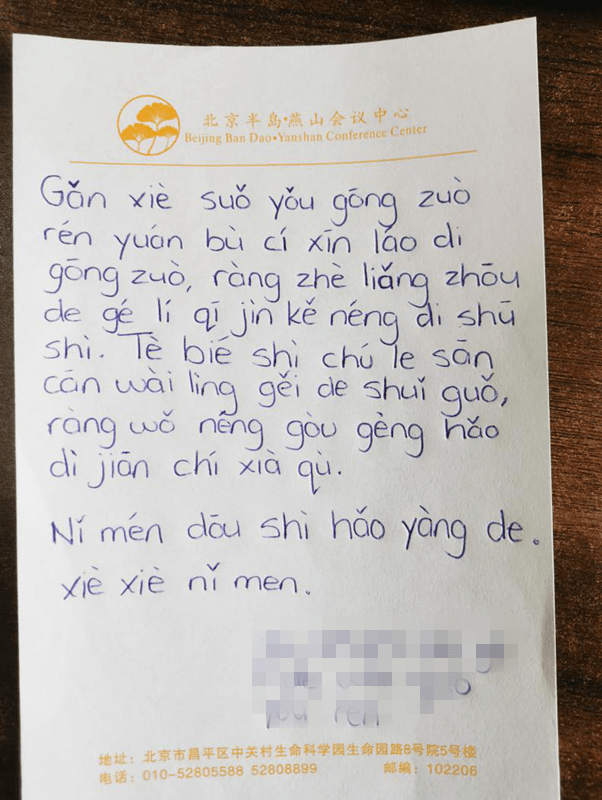 北京半岛·燕山会议中心
Beijing Ban Dao·Yanshan Conference Center
Gǎn xiè suǒ yǒu gōng zuò
rén yuán bù cí xīn láo di
gōng zuò, ràng zhè liǎng zhōu
de gé lí qī jìn kě néng di shū
shì. Tè bié shì chú le sān
cān wài lìng gěi de shuǐ guǒ,
ràng wǒ néng gòu gèng hǎo
dì jiān chí xià qù.
Nǐ mén dōu shì hǎo yàng de.
xiè xiè nǐ men.
地址:北京市昌平区中关村生命科学园生命园路8号院5号楼
电话:010-52805588 52808899 邮编:102206